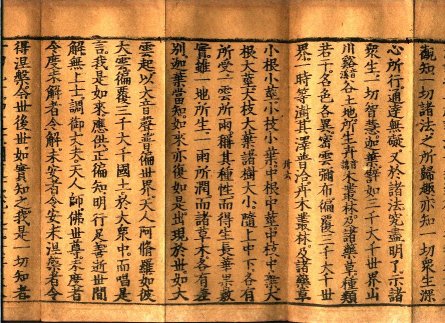 觀知一切諸法之所歸趣亦知一切衆生深
心所行通達無礙又於諸法究盡明了示諸
衆生一切智慧迦葉譬如三千大千世界山
川谿谷土地所生卉木叢林及諸藥草種類
若干名色各異密雲彌布徧覆三千大千世
界一時等澍其澤普洽卉木叢林及諸藥草
卅六
小根小莖小枝小葉中根中莖中枝中葉大
根大莖大枝大葉諸樹大小隨上中下各有
所受一雲所雨稱其種性而得生長華果敷
實雖一地所生一雨所潤而諸草木各有差
别迦葉當知如來亦復如是出現於世如大
雲起以大音聲普徧世界天人阿脩羅如彼
大雲徧覆三千大千國土於大衆中而唱是
言我是如來應供正徧知明行足善逝世間
解無上士調御丈夫天人師佛世尊未度者
令度未解者令解未安者令安未涅槃者令
得涅槃今世後世如實知之我是一切知者